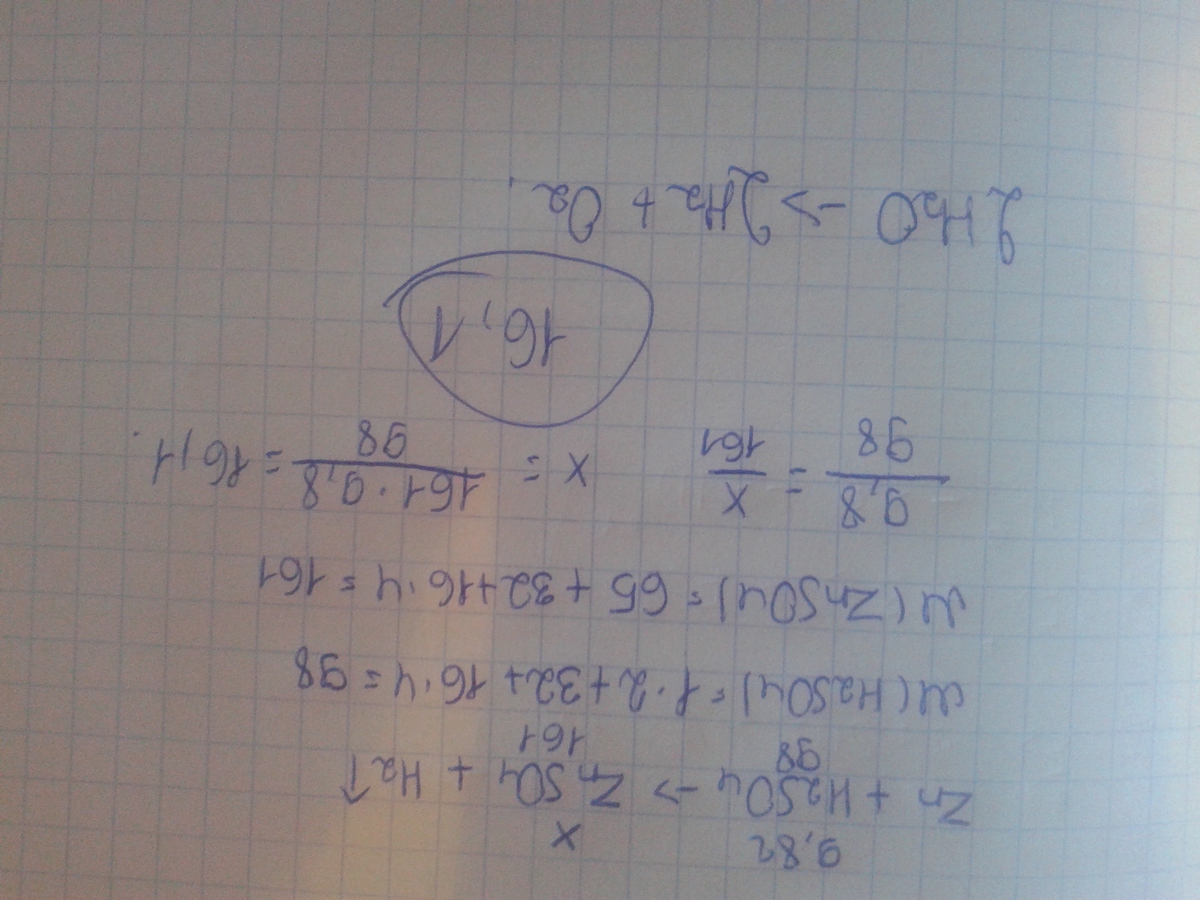 9,8г x
Zn + H2SO4 -> ZnSO4 + H2↑
98 161
M(H2SO4) = 1·2+32+16·4=98
M(ZnSO4) = 65+32+16·4=161
9,8/98 = x/161 x = 161·9,8/98 = 16,1.
16,1
2H2O -> 2H2 + O2.